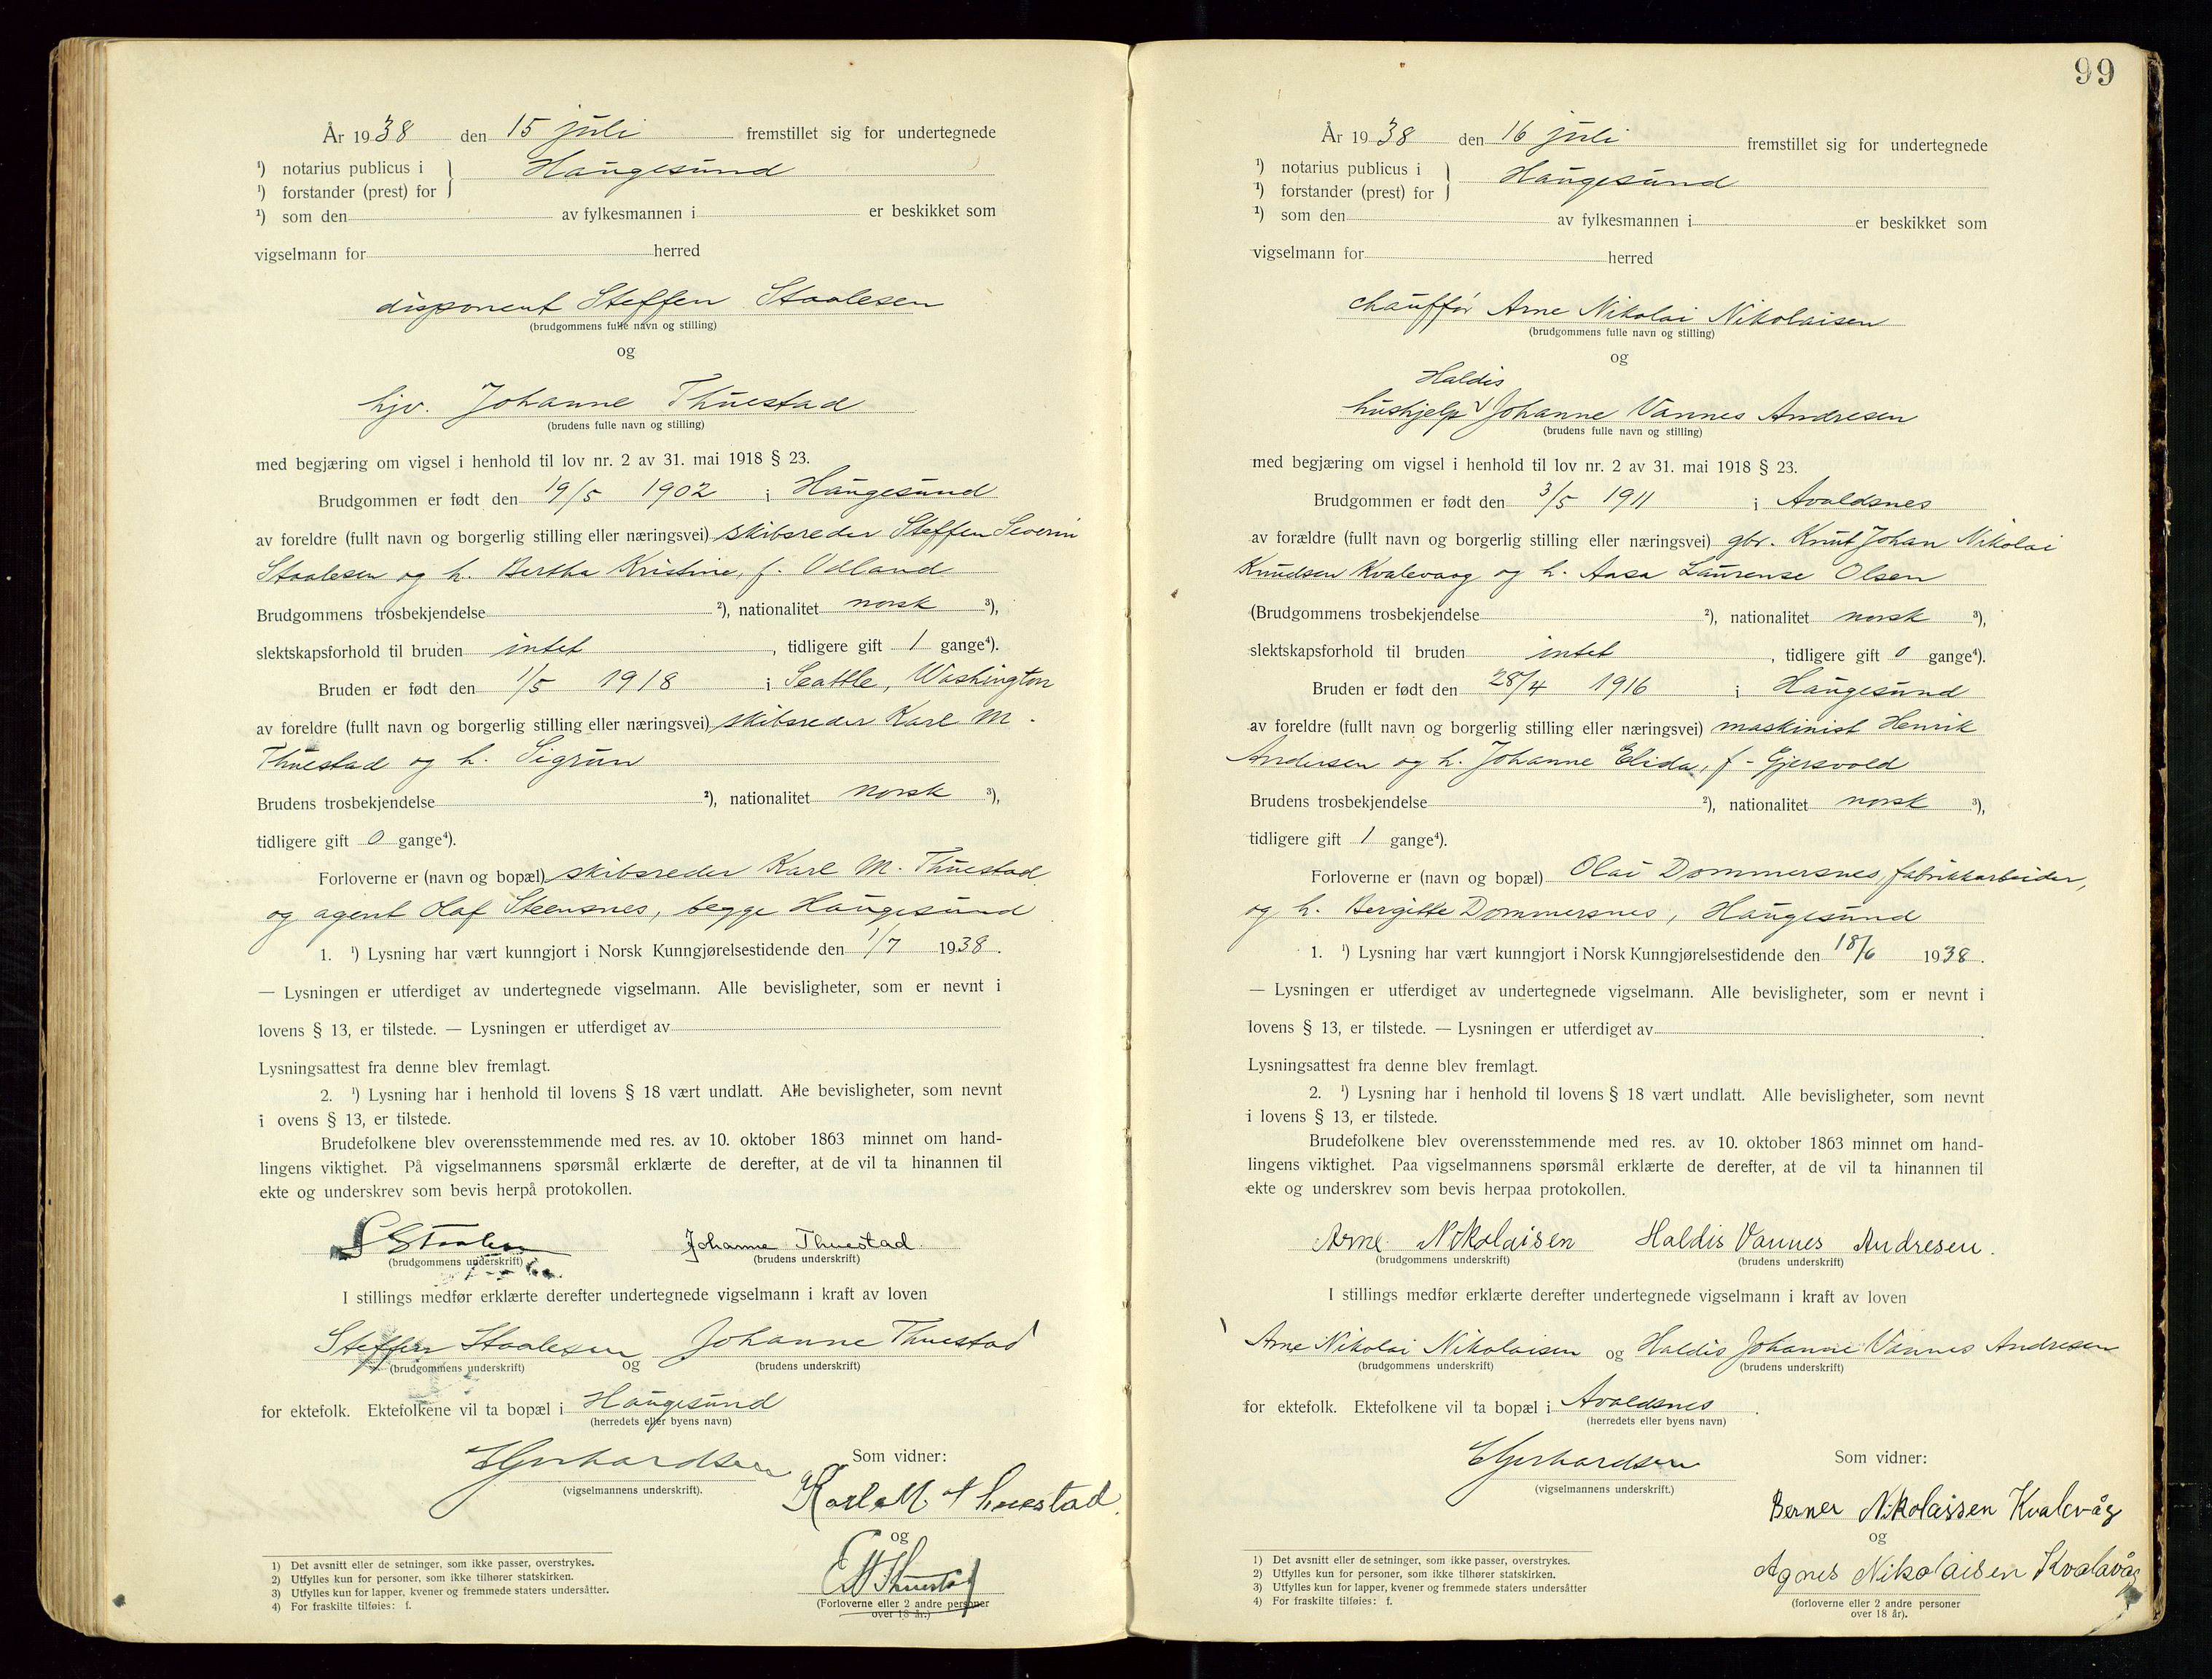 År 1938 den 15 juli fremstillet sig for undertegnede
¹) notarius publicus i } Haugesund
¹) forstander (prest) for
¹) som den av fylkesmannen i er beskikket som
vigselmann for herred
disponent Steffen Staalesen
(brudgommens fulle navn og stilling)
og
hjv. Johanne Thuestad
(brudens fulle navn og stilling)
med begjæring om vigsel i henhold til lov nr. 2 av 31. mai 1918 § 23.
Brudgommen er født den 19/5 1902 i Haugesund
av foreldre (fullt navn og borgerlig stilling eller næringsvei) skibsreder Steffen Severin
Staalesen og h. Bertha Kristine, f. Udland
Brudgommens trosbekjendelse ²), nationalitet norsk ³),
slektskapsforhold til bruden intet, tidligere gift 1 gange⁴).
Bruden er født den 1/5 1918 i Seattle, Washington
av foreldre (fullt navn og borgerlig stilling eller næringsvei) skibsreder Karl M.
Thuestad og h. Sigrun
Brudens trosbekjendelse ²), nationalitet norsk ³),
tidligere gift 0 gange⁴).
Forloverne er (navn og bopæl) skibsreder Karl M. Thuestad
og agent Olaf Steensnes, begge Haugesund
1. ¹) Lysning har vært kunngjort i Norsk Kunngjørelsestidende den 1/7 1938.
— Lysningen er utferdiget av undertegnede vigselmann. Alle bevisligheter, som er nevnt i
lovens § 13, er tilstede. — Lysningen er utferdiget av
Lysningsattest fra denne blev fremlagt.
2. ¹) Lysning har i henhold til lovens § 18 vært undlatt. Alle bevisligheter, som nevnt
i ovens § 13, er tilstede.
Brudefolkene blev overensstemmende med res. av 10. oktober 1863 minnet om hand-
lingens viktighet. På vigselmannens spørsmål erklærte de derefter, at de vil ta hinannen til
ekte og underskrev som bevis herpå protokollen.
S Staalesen Johanne Thuestad.
(brudgommens underskrift) (brudens underskrift)
I stillings medfør erklærte derefter undertegnede vigselmann i kraft av loven
Steffen Staalesen og Johanne Thuestad
(brudgommens underskrift) (brudens underskrift)
for ektefolk. Ektefolkene vil ta bopæl i Haugesund
(herredets eller byens navn)
EGerhardsen Som vidner:
(vigselmannens underskrift).
Karl M Thuestad.
og
Thuestad
(Forloverne eller 2 andre personer
over 18 år.)
1) Det avsnitt eller de setninger, som ikke passer, overstrykes.
2) Utfylles kun for personer, som ikke tilhører statskirken.
3) Utfylles kun for lapper, kvener og fremmede staters undersåtter.
4) For fraskilte tilføies: f.
99
År 1938 den 16 juli fremstillet sig for undertegnede
¹) notarius publicus i } Haugesund
¹) forstander (prest) for
¹) som den av fylkesmannen i er beskikket som
vigselmann for herred
chauffør Arne Nikolai Nikolaisen
(brudgommens fulle navn og stilling)
og
Haldis
hushjelp √ Johanne Vannes Andresen
(brudens fulle navn og stilling)
med begjæring om vigsel i henhold til lov nr. 2 av 31. mai 1918 § 23.
Brudgommen er født den 3/5 1911 i Avaldsnes
av forældre (fullt navn og borgerlig stilling eller næringsvei) gbr. Knut Johan Nikolai
Knudsen Kvalevaag og h. Aasa Laurense Olsen
(Brudgommens trosbekjendelse ²), nationalitet norsk ³),
slektskapsforhold til bruden intet, tidligere gift 0 gange⁴).
Bruden er født den 28/4 1916 i Haugesund
av foreldre (fullt navn og borgerlig stilling eller næringsvei) maskinist Henrik
Andersen og h. Johanne Elida, f. Gjersvold
Brudens trosbekjendelse ²), nationalitet norsk ³),
tidligere gift 1 gange⁴).
Forloverne er (navn og bopæl) Olai Dommersnes, fabrikkarbeider,
og h. Bergitte Dommersnes, Haugesund
1. ¹) Lysning har vært kunngjort i Norsk Kunngjørelsestidende den 18/6 1938.
— Lysningen er utferdiget av undertegnede vigselmann. Alle bevisligheter, som er nevnt i
lovens § 13, er tilstede. — Lysningen er utferdiget av
Lysningsattest fra denne blev fremlagt.
2. ¹) Lysning har i henhold til lovens § 18 vært undlatt. Alle bevisligheter, som nevnt
i lovens § 13, er tilstede.
Brudefolkene blev overensstemmende med res. av 10. oktober 1863 minnet om hand-
lingens viktighet. Paa vigselmannens spørsmål erklærte de derefter, at de vil ta hinannen til
ekte og underskrev som bevis herpaa protokollen.
Arne Nikolaisen Haldis Vannes Andresen.
(brudgommens underskrift) (brudens underskrift)
I stillings medfør erklærte derefter undertegnede vigselmann i kraft av loven
Arne Nikolai Nikolaisen og Haldis Johanne Vannes Andresen
(brudgommens underskrift) (brudens underskrift)
for ektefolk. Ektefolkene vil ta bopæl i Avaldsnes.
(herredets eller byens navn)
EGerhardsen Som vidner:
(vigselmannens underskrift.)
Berner Nikolaisen Kvalevåg
og
Agnes Nikolaisen Kvalavåg
(forloverne eller 2 andre personer
over 18 år).
1) Det avsnitt eller de setninger, som ikke passer, overstrykes.
2) Utfylles kun for personer, som ikke tilhører statskirken.
3) Utfylles kun for lapper, kvener og fremmede staters undersåtter
4) For fraskilte tilføies: f.